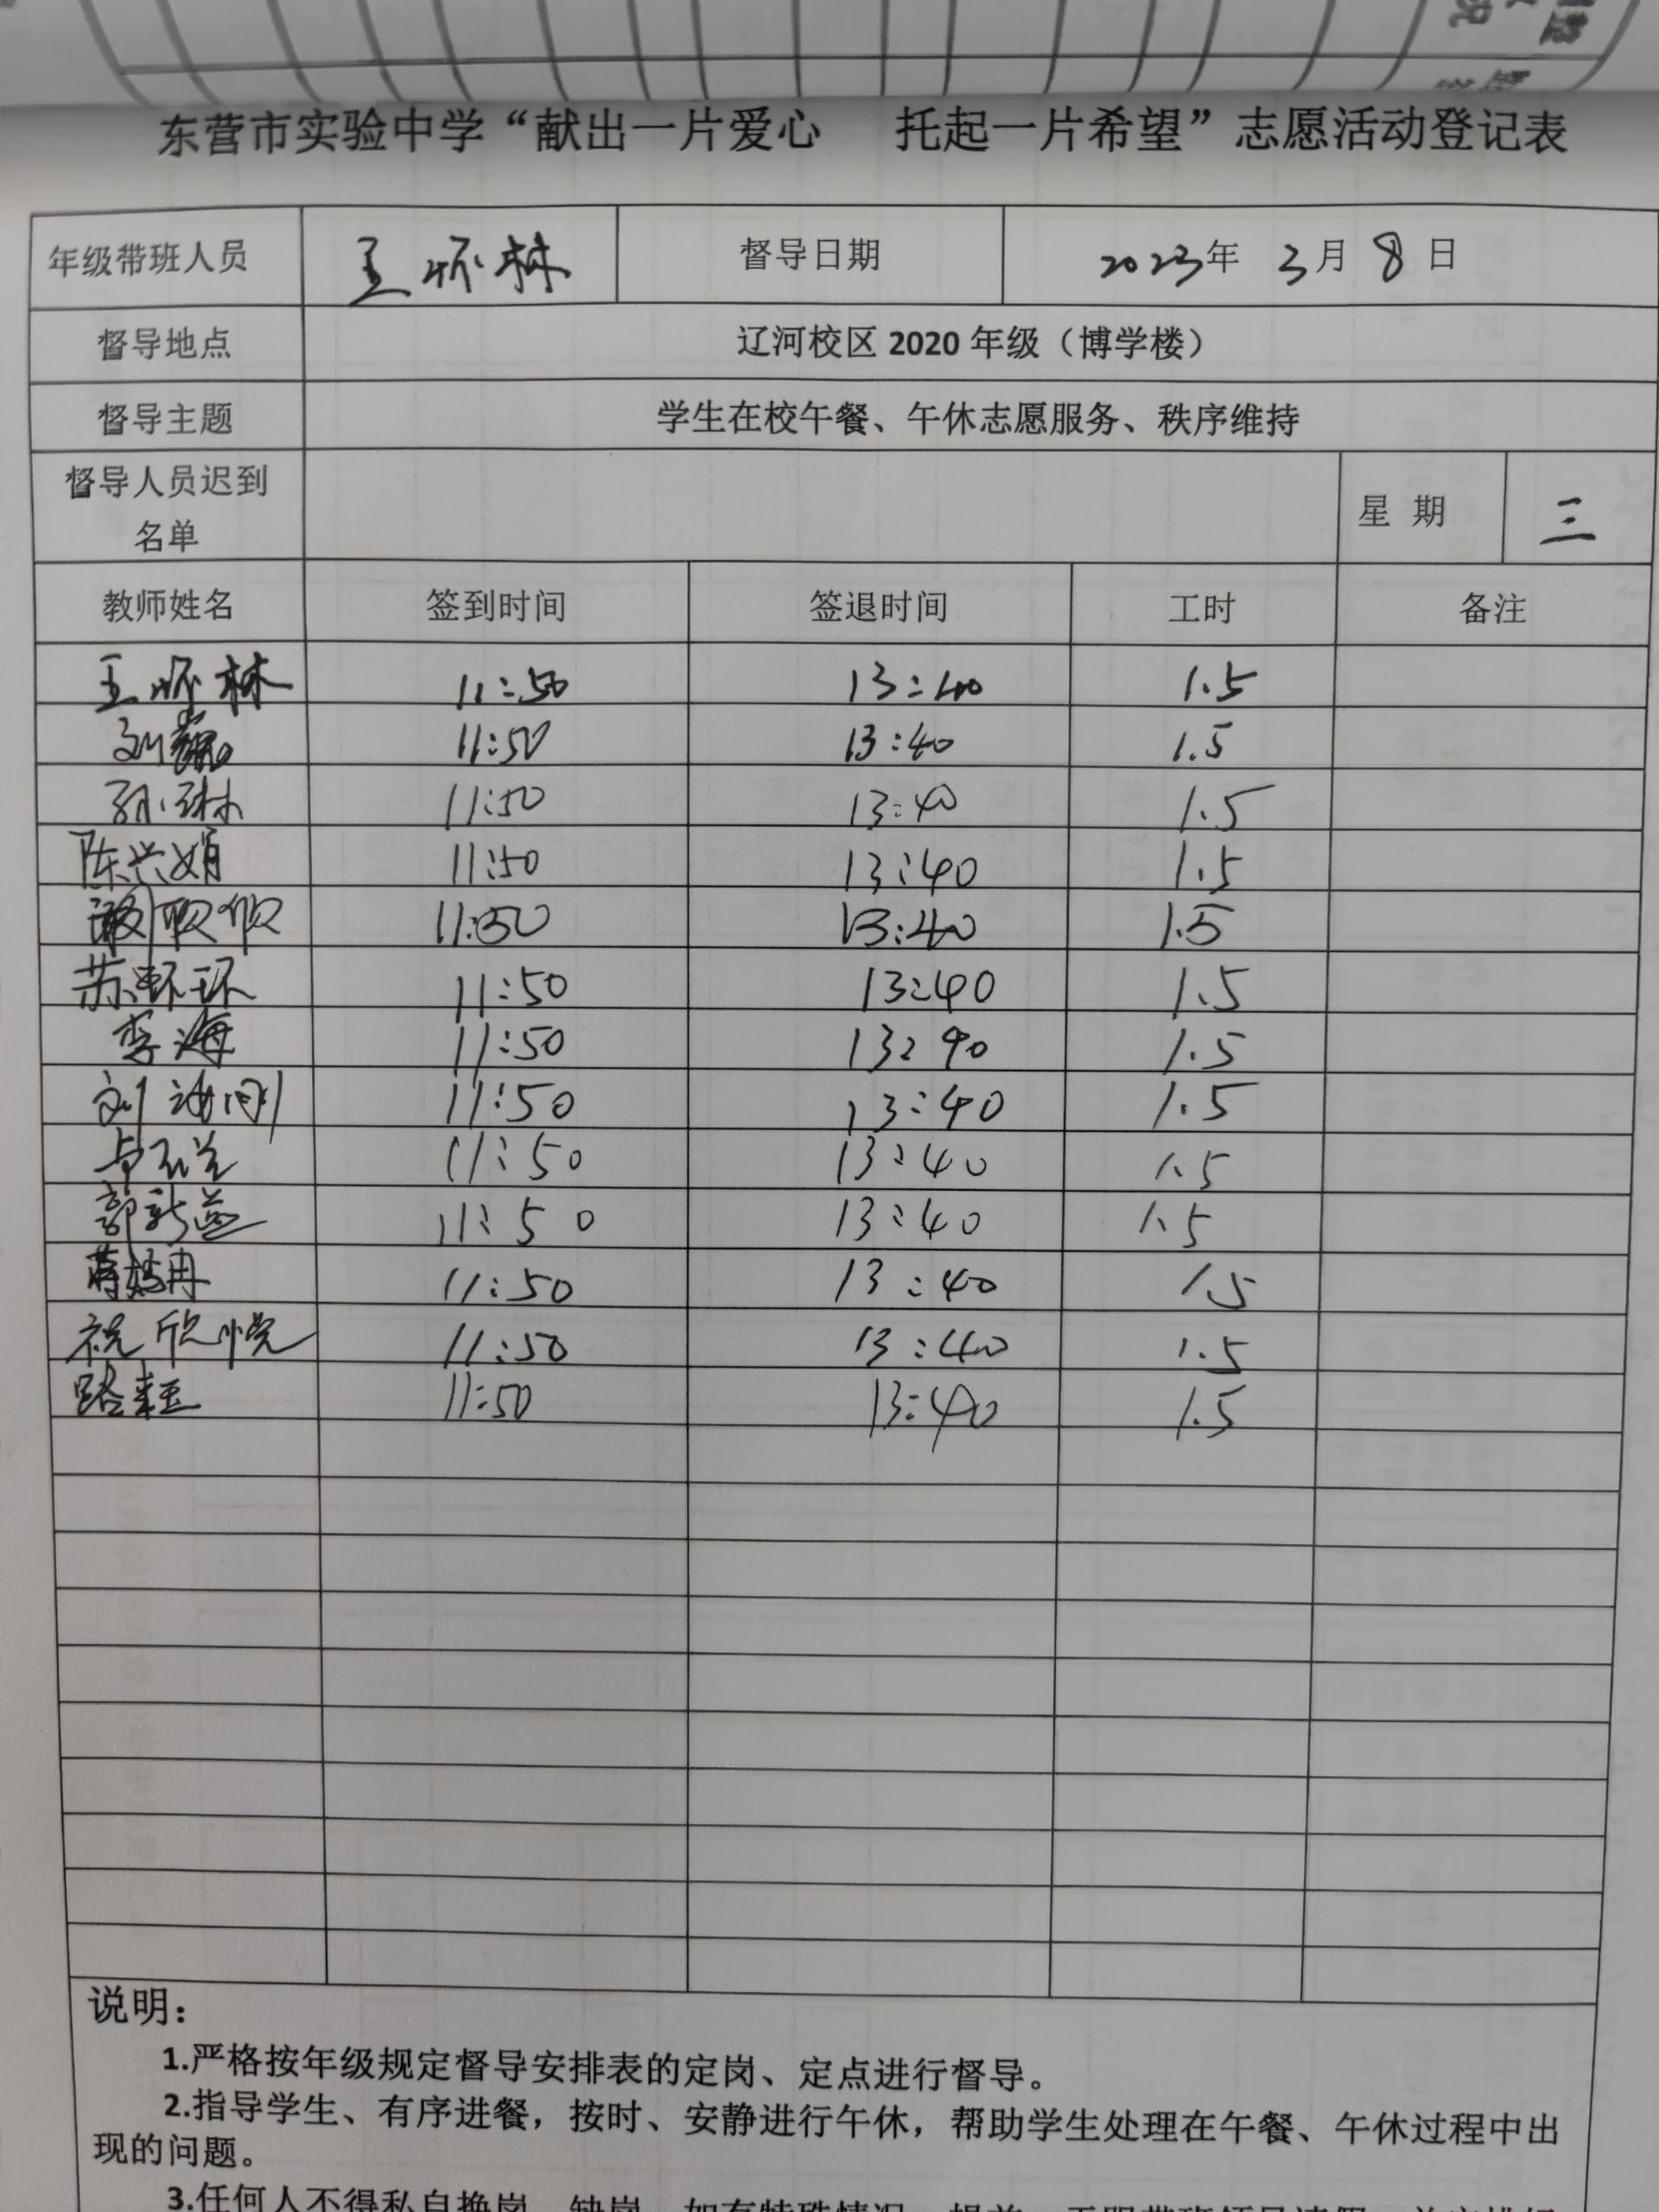 东营市实验中学“献出一片爱心 托起一片希望”志愿活动登记表
年级带班人员 王怀林 督导日期 2023年 3月 8日
督导地点 辽河校区 2020 年级（博学楼）
督导主题 学生在校午餐、午休志愿服务、秩序维持
督导人员迟到
名单
星 期 三
教师姓名 签到时间 签退时间 工时 备注
王怀林 11:50 13:40 1.5
刘 11:50 13:40 1.5
孙琳 11:50 13:40 1.5
陈兴娟 11:50 13:40 1.5
11:50 13:40 1.5
苏环环 11:50 13:40 1.5
李海 11:50 13:40 1.5
刘 11:50 13:40 1.5
11:50 13:40 1.5
郭新益 11:50 13:40 1.5
蒋 冉 11:50 13:40 1.5
祝欣悦 11:50 13:40 1.5
路 11:50 13:40 1.5
说明：
1.严格按年级规定督导安排表的定岗、定点进行督导。
2.指导学生、有序进餐，按时、安静进行午休，帮助学生处理在午餐、午休过程中出
现的问题。
3.任何人不得私自换岗、缺岗，如有特殊情况，提前一天跟带班领导请假，并安排好